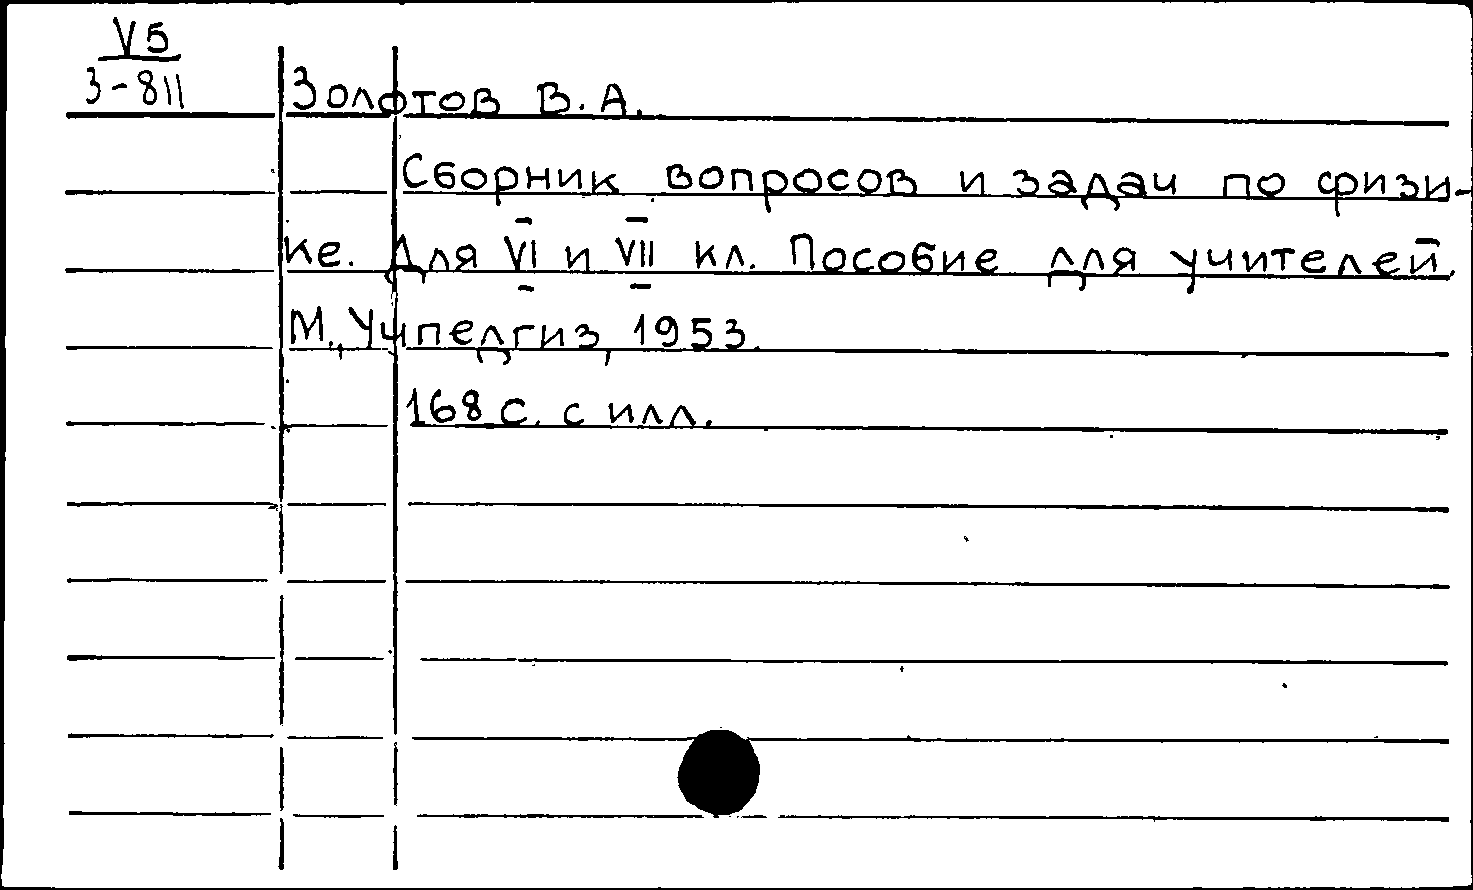 V5
З-811
Золотов В. А.
Сборник вопросов и задач по физи-
ке. Для VI и VII кл. Пособие для учителей.
М., Учпедгиз, 1953.
168 с. с илл.